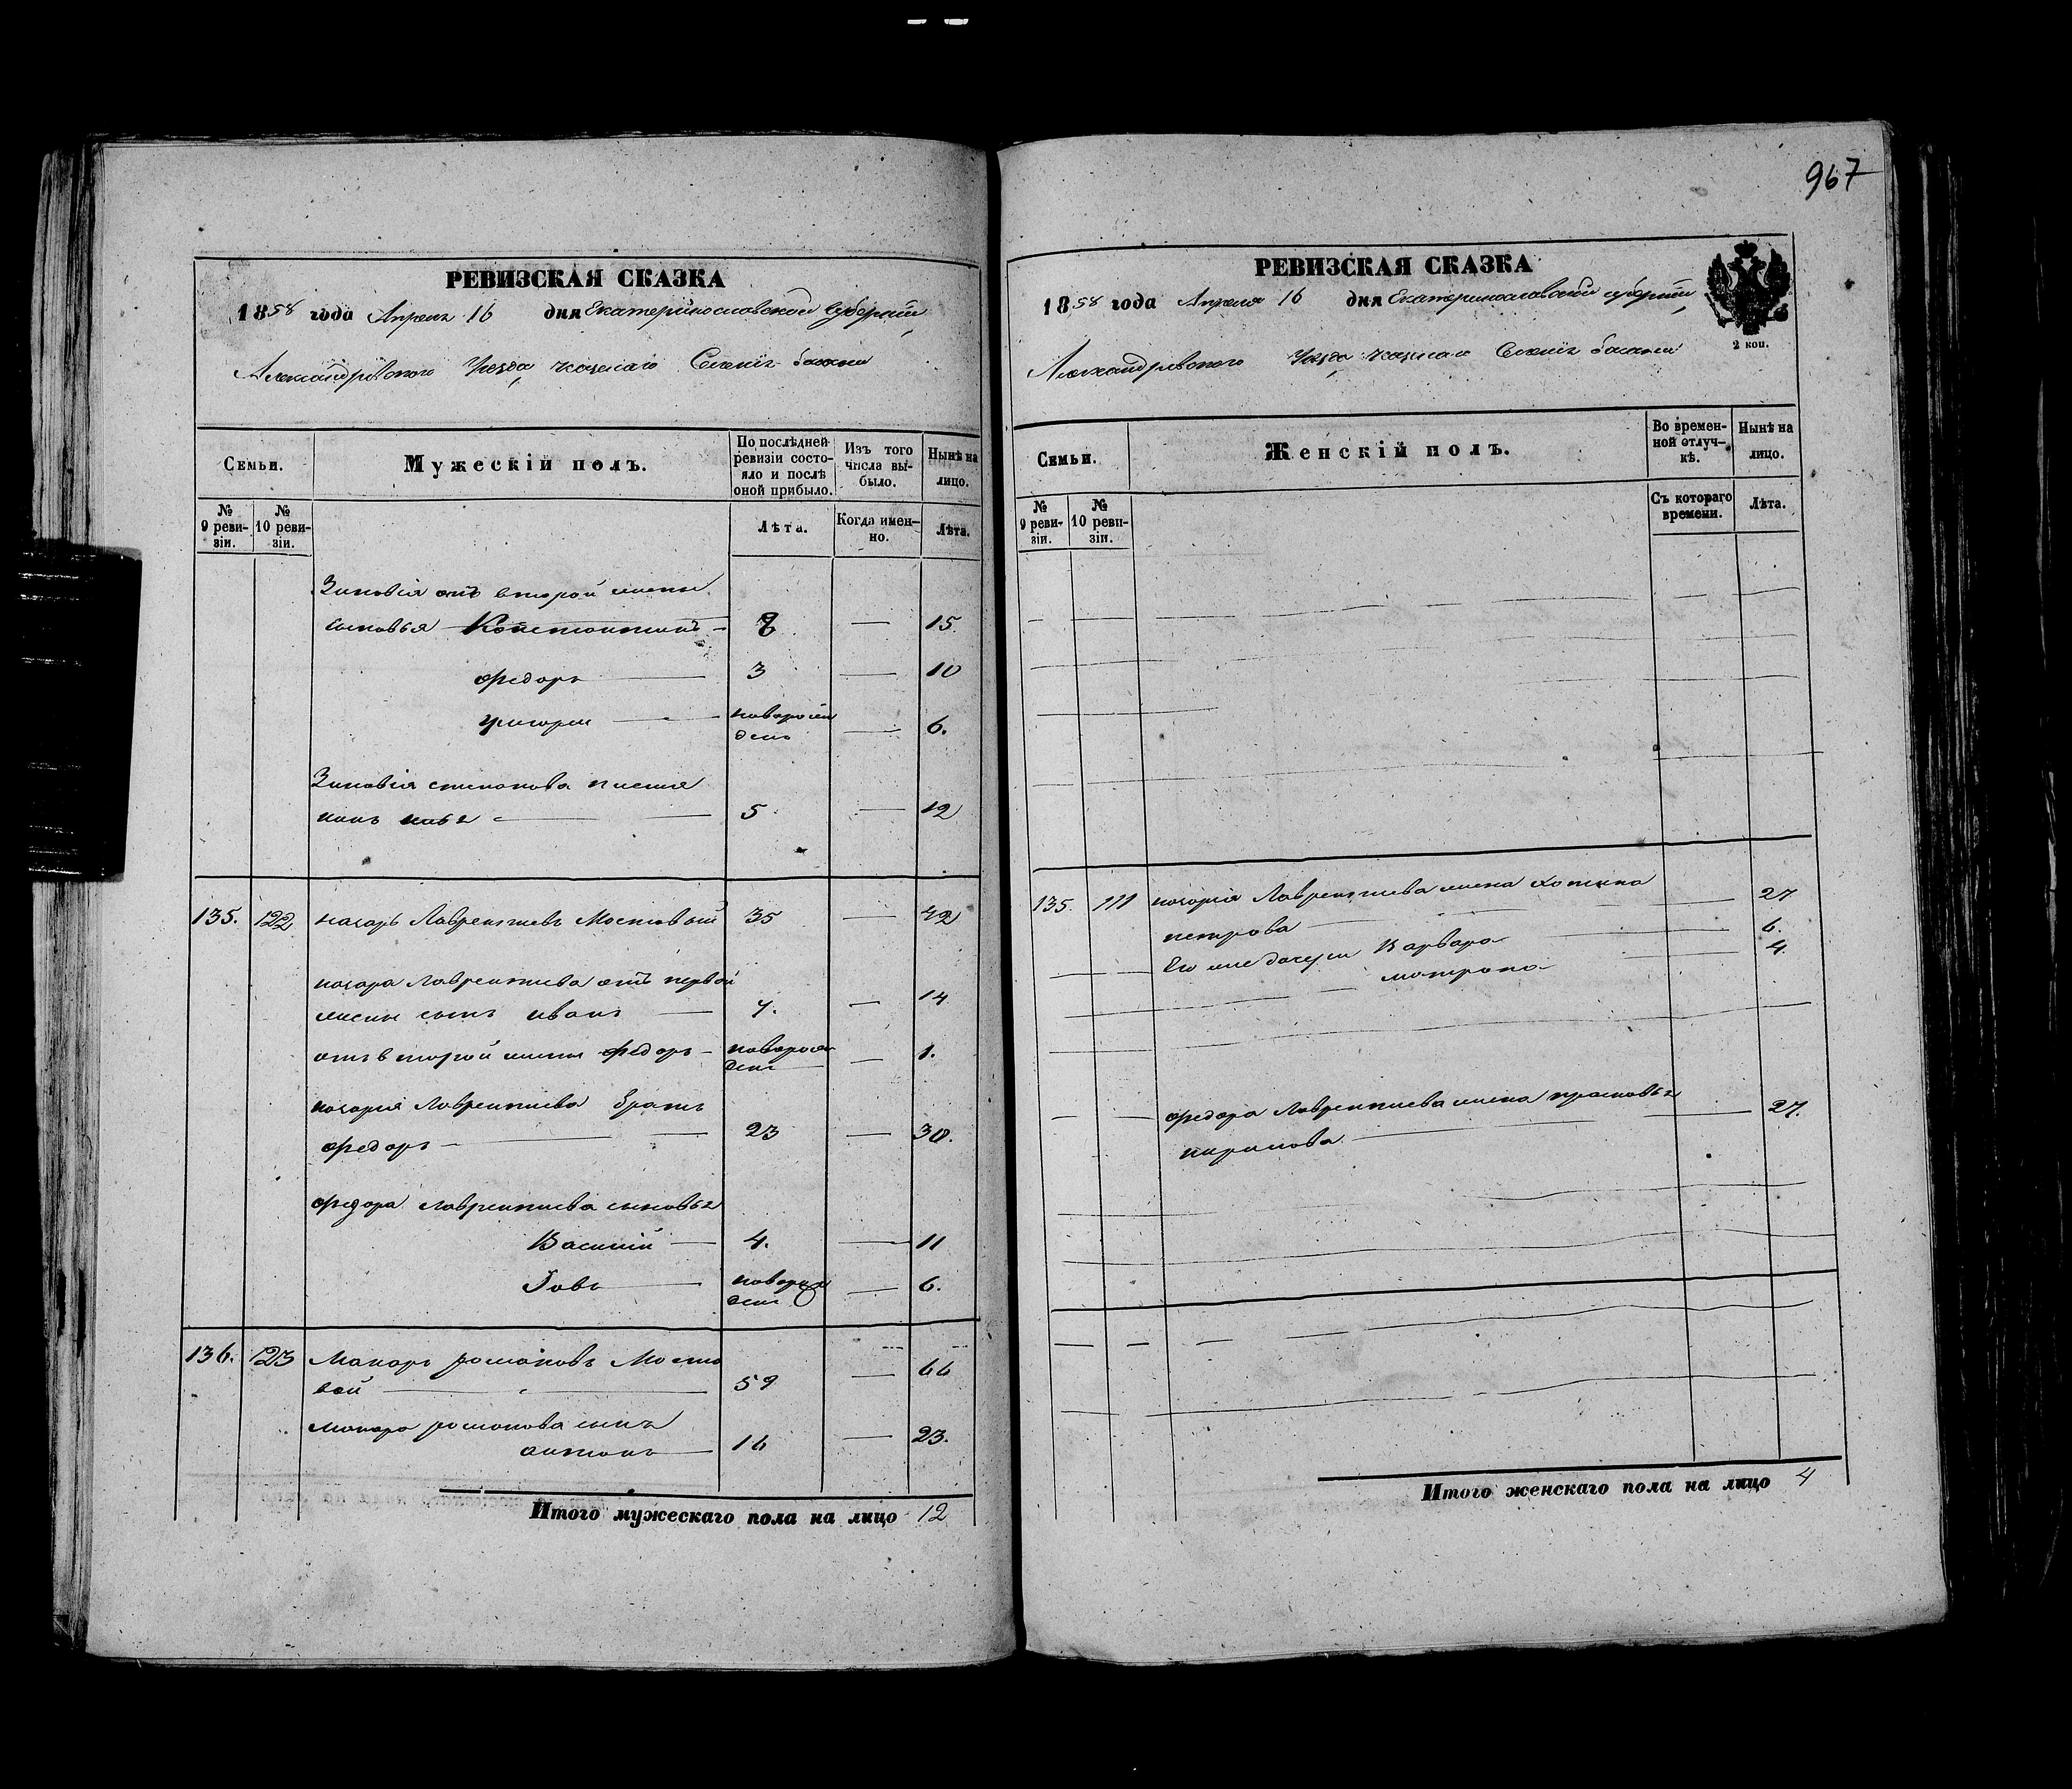 967
РЕВИЗСКАЯ СКАЗКА
1858 года Апреля 16 дня Екатеринославской губернии
Александровского Уезда казенаго Селенія
Семьи.
Мужескій полъ.
По послѣдней ревизіи состояло и послѣ оной прибыло.
Изъ того числа выбыло.
Нынѣ на лицо.
№ 9 ревизіи.
№ 10 ревизіи.
Лѣта.
Когда именно.
Лѣта.
Зиновія отъ второй жены
сыновья Констонтинъ 8 — 15.
Федоръ 3 — 10
Григорій новорожденъ — 6.
Зиновія степанова племя
5 — 12
135. 122 Лаврентиевъ Мостовый 35 — 42
Лаврентиева отъ первой
жены сынъ иванъ 7. — 14
отъ второй жены Федоръ новорожденъ — 1.
Лаврентиева братъ
Федоръ 23 — 30.
Федора Лаврентиева сыновья
Василій 4. — 11
Іовъ новорожденъ — 6.
136. 123 Макаръ романовъ Мосто
вой 59 — 66
Макара романова сынъ
антонъ 16 — 23.
Итого мужескаго пола на лицо 12
РЕВИЗСКАЯ СКАЗКА
1858 года Апреля 16 дня Екатеринославской губерніи
2 коп.
Александровского Уезда казенаго Селенія
Семьи.
Женскій полъ.
Во временной отлучкѣ.
Нынѣ на лицо.
№ 9 ревизіи.
№ 10 ревизіи.
Съ котораго времени.
Лѣта.
135. 111 Лаврентиева жена 27
петрова
Его же дочери Варвара 6.
матрона 4.
Федора Лаврентиева жена прасковья 27.
кирилова
Итого женскаго пола на лицо 4